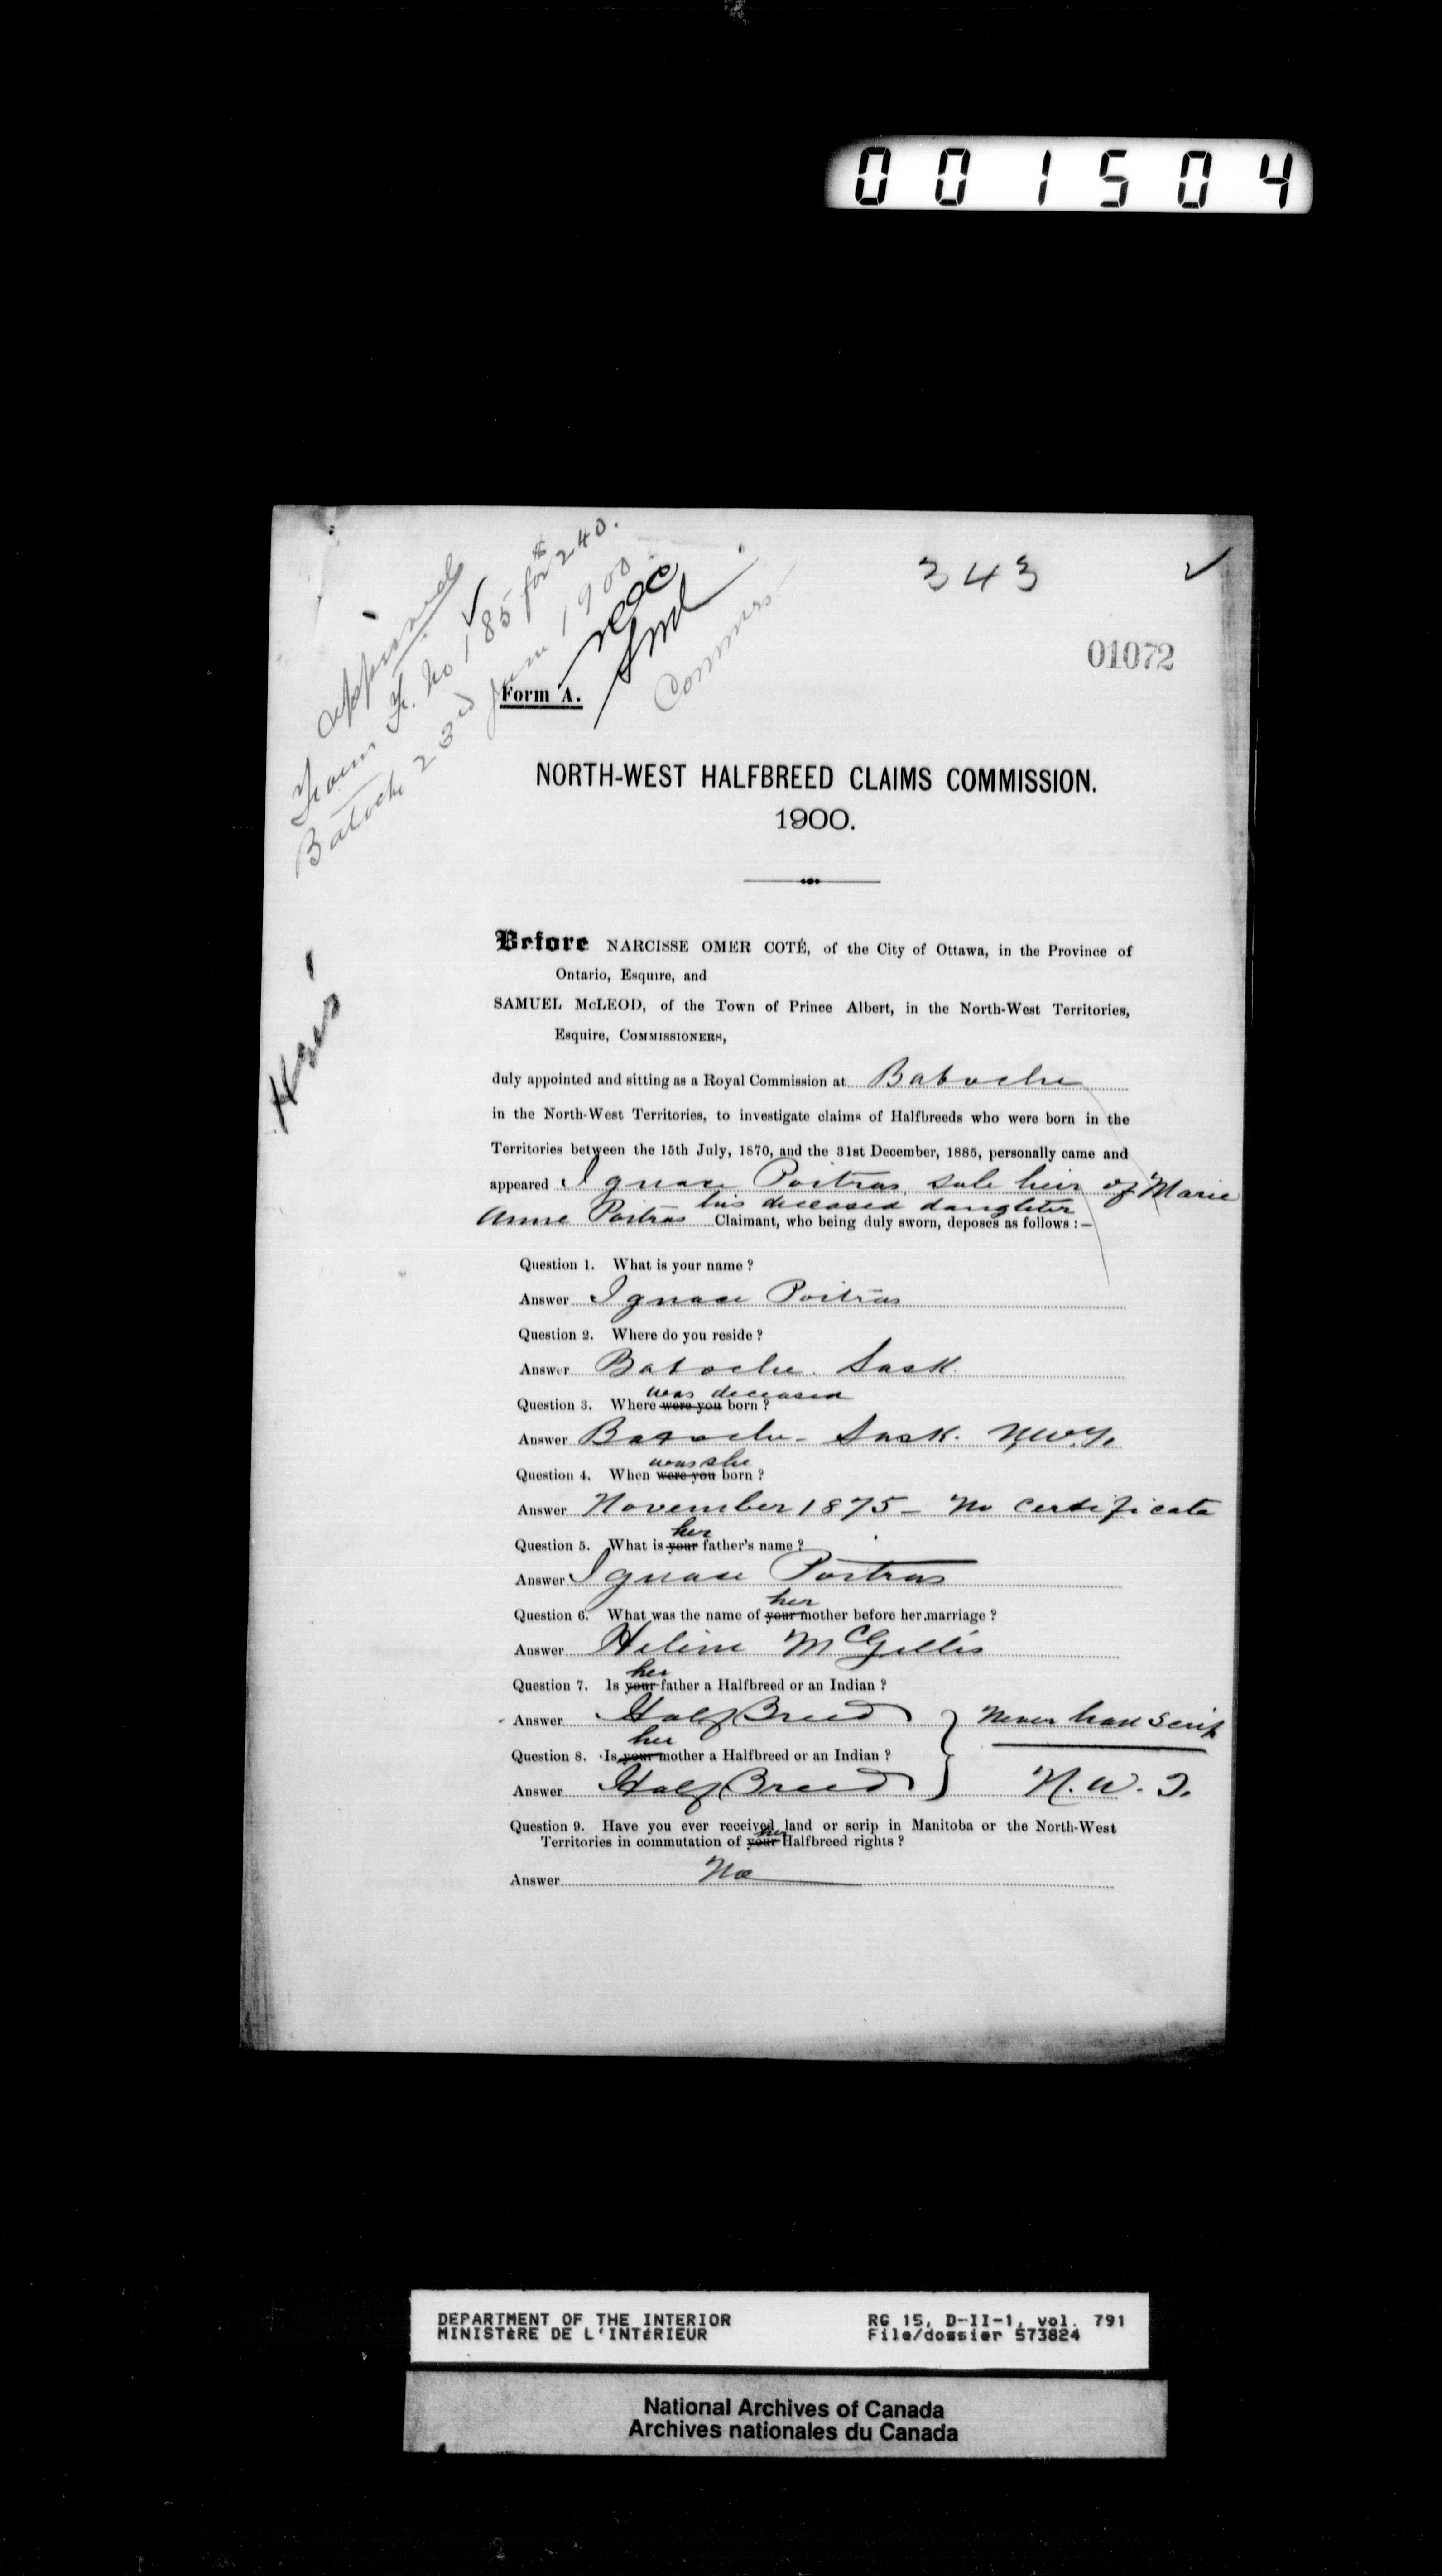 001504
343
01072
approved
Form F. No 185 for $240.
Batoche 23rd June 1900
NOC
SMcL
Commrs
Heirs
Form A.
NORTH-WEST HALFBREED CLAIMS COMMISSION.
1900.
Before NARCISSE OMER COTÉ, of the City of Ottawa, in the Province of
Ontario, Esquire, and
SAMUEL McLEOD, of the Town of Prince Albert, in the North-West Territories,
Esquire, COMMISSIONERS,
duly appointed and sitting as a Royal Commission at Batoche
in the North-West Territories, to investigate claims of Halfbreeds who were born in the
Territories between the 15th July, 1870, and the 31st December, 1885, personally came and
appeared Ignace Poitras, sole heir of Marie
his deceased daughter
Anne Poitras Claimant, who being duly sworn, deposes as follows :—
Question 1. What is your name ?
Answer Ignace Poitras
Question 2. Where do you reside ?
Answer Batoche. Sask.
was deceased
Question 3. Where were you born ?
Answer Batoche - Sask. N.W.T.
was she
Question 4. When were you born ?
Answer November 1875 - No certificate
her
Question 5. What is your father's name ?
Answer Ignace Poitras
her
Question 6. What was the name of your mother before her marriage ?
Answer Helène McGillis
her
Question 7. Is your father a Halfbreed or an Indian ?
Answer Half Breed } Never had scrip
her
Question 8. Is your mother a Halfbreed or an Indian ?
Answer Half Breed N.W.T.
Question 9. Have you ever received land or scrip in Manitoba or the North-West
her
Territories in commutation of your Halfbreed rights ?
Answer No
DEPARTMENT OF THE INTERIOR RG 15, D-II-1, vol. 791
MINISTÈRE DE L'INTÉRIEUR File/dossier 573824
National Archives of Canada
Archives nationales du Canada